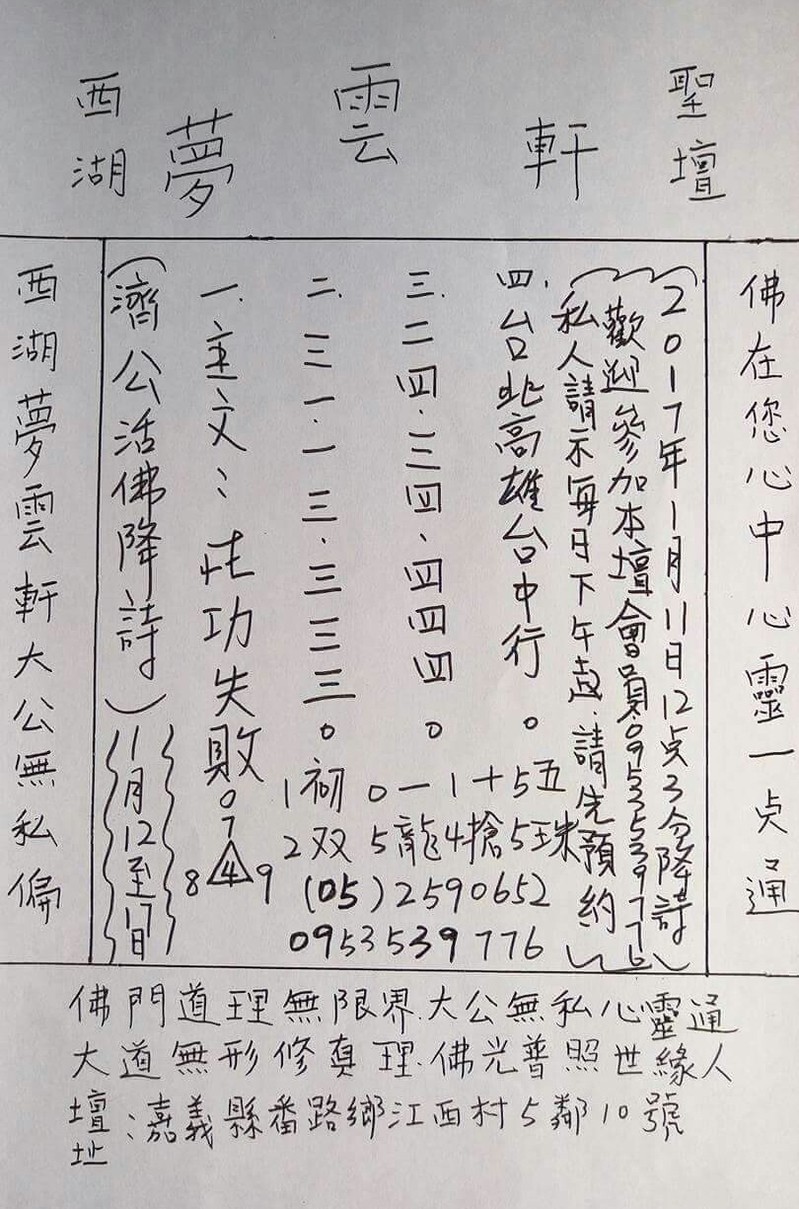 西湖
夢雲軒
聖壇
佛在您心中心靈一点通
(2017年1月11日12点3分降詩)
歡迎參加本壇會員0953539776
私人請示每日下午起.請先預約
四.台北高雄台中行。
三.二四.三四、四四四。
二.三一.一三.三三三。
一.主文:性功失敗
(濟公活佛降詩)
11月12至17日
西湖夢雲軒大公無私偏
1初 0一 1十 5五
2双 5龍 4搶 5珠
0
7
8 4 9
(05)2590652
0953539776
佛門道理無限界.大公無私心靈通
大道無形修真理.佛光普照世緣人
壇址:嘉義縣番路鄉江西村5鄰10號